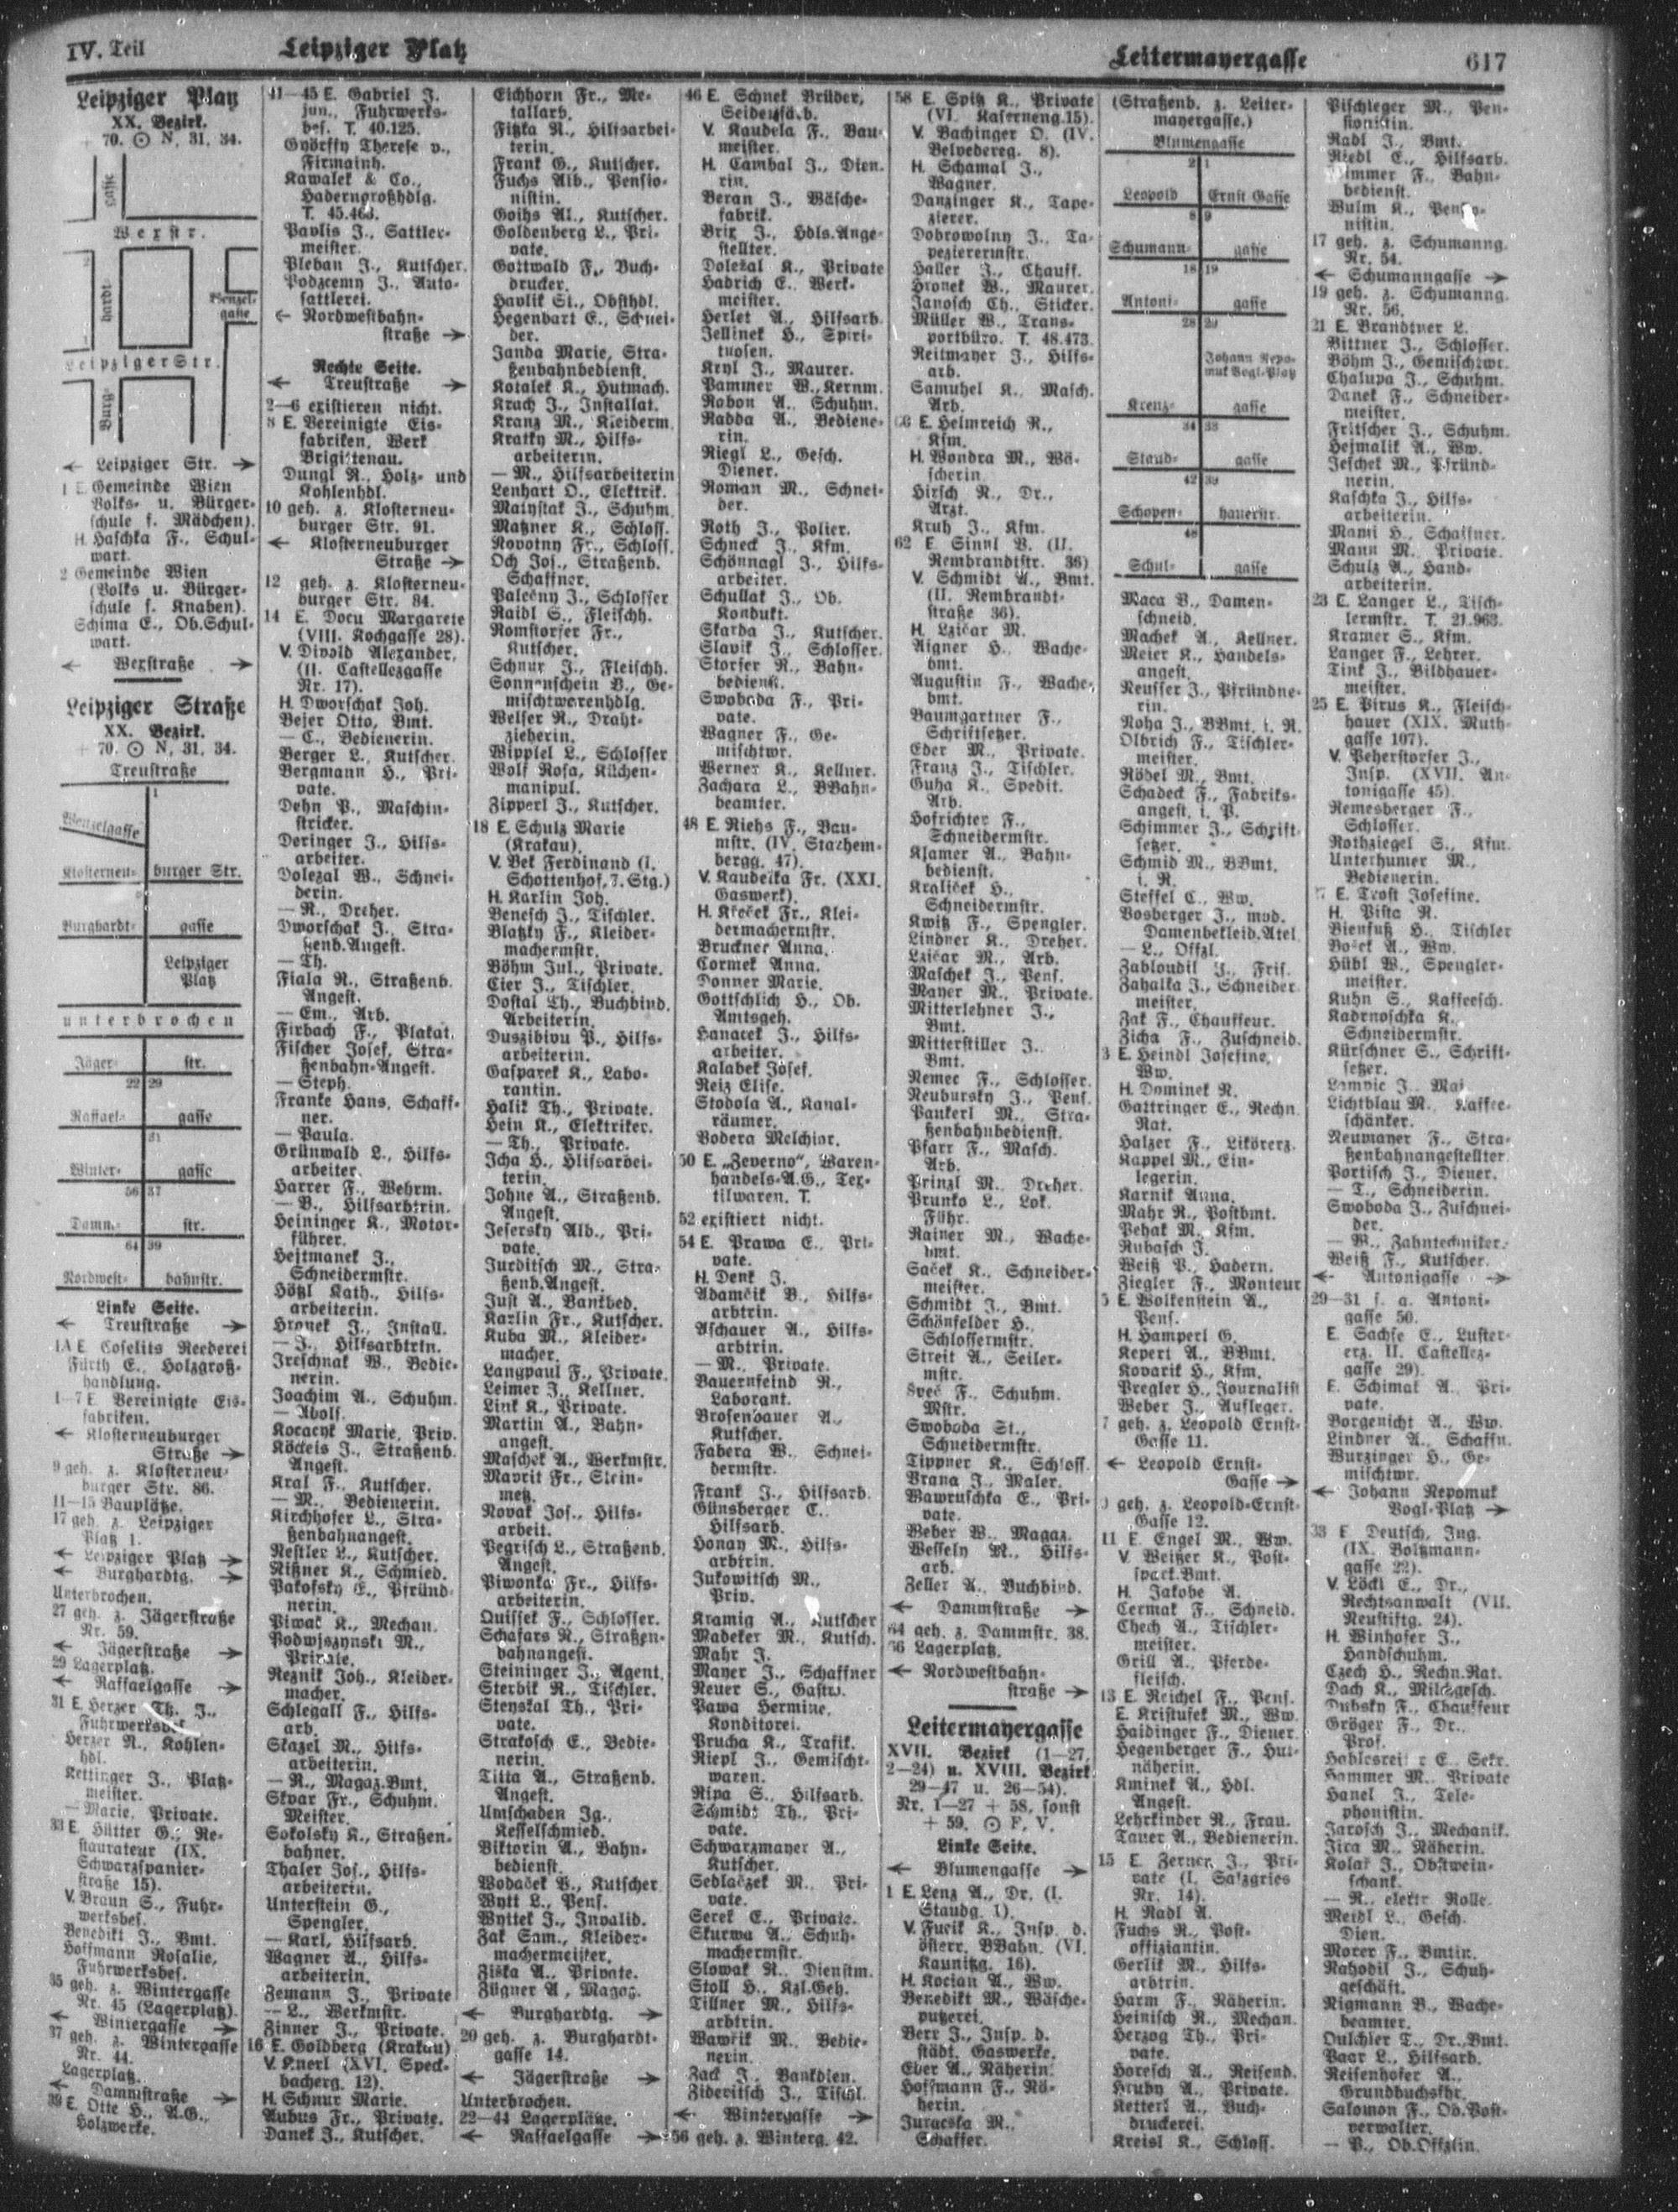 IV. Teil
Leipziger Platz
Leitermayergasse
617
Leipziger Platz
XX. Bezirk.
+ 70. ⊙ N, 31, 34.
gasse
Wexstr.
hardt-
Wenzel-
gasse
Leipziger Str.
Burg-
← Leipziger Str. →
1 E. Gemeinde Wien
Volks- u. Bürger-
schule f. Mädchen).
H. Haschka F., Schul-
wart.
2 Gemeinde Wien
(Volks u. Bürger-
schule f. Knaben).
Schima E., Ob.Schul-
wart.
← Wexstraße →
Leipziger Straße
XX. Bezirk.
+ 70. ⊙ N, 31, 34.
Treustraße
1
Wenzelgasse
Klosterneu- burger Str.
Burghardt- gasse
Leipziger
Platz
unterbrochen
Jäger- str.
22 29
Raffael- gasse
31
Winter- gasse
56 37
Damm- str.
64 39
Nordwest- bahnstr.
Linke Seite.
← Treustraße →
1A E. Coselits Reederei
Fürth E., Holzgroß-
handlung.
1—7 E. Vereinigte Eis-
fabriken.
← Klosterneuburger
Straße →
9 geh. z. Klosterneu-
burger Str. 86.
11—15 Bauplätze.
17 geh. z. Leipziger
Platz 1.
← Leipziger Platz →
← Burghardtg. →
Unterbrochen.
27 geh. z. Jägerstraße
Nr. 59.
← Jägerstraße →
29 Lagerplatz.
← Raffaelgasse →
31 E. Herzer Th. J.,
Fuhrwerksbes.
Herzer R., Kohlen-
hdl.
Kettinger J., Platz-
meister.
— Marie, Private.
33 E. Hütter G., Re-
staurateur (IX.
Schwarzspanier-
straße 15).
V. Braun S., Fuhr-
werksbes.
Benedikt J., Bmt.
Hoffmann Rosalie,
Fuhrwerksbes.
35 geh. z. Wintergasse
Nr. 45 (Lagerplatz).
← Wintergasse →
37 geh. z. Wintergasse
Nr. 44.
Lagerplatz.
← Dammstraße →
39 E. Otte H., A.G.,
Holzwerke.
41—45 E. Gabriel J.
jun., Fuhrwerks-
bes. T. 40.125.
Györffy Therese v.,
Firmainh.
Kawalek & Co.,
Haderngroßhdlg.
T. 45.463.
Pavlis J., Sattler-
meister.
Pleban J., Kutscher.
Podzemy J., Auto-
sattlerei.
← Nordwestbahn-
straße →
Rechte Seite.
← Treustraße →
2—6 existieren nicht.
8 E. Vereinigte Eis-
fabriken, Werk
Brigittenau.
Dungl R., Holz- und
Kohlenhdl.
10 geh. z. Klosterneu-
burger Str. 91.
← Klosterneuburger
Straße →
12 geh. z. Klosterneu-
burger Str. 84.
14 E. Docu Margarete
(VIII. Kochgasse 28).
V. Divold Alexander,
(II. Castellezgasse
Nr. 17).
H. Dworschak Joh.
Bejer Otto, Bmt.
— C., Bedienerin.
Berger L., Kutscher.
Bergmann H., Pri-
vate.
Dehn P., Maschin-
stricker.
Deringer J., Hilfs-
arbeiter.
Dolezal W., Schnei-
derin.
— R., Dreher.
Dworschak J., Stra-
ßenb.Angest.
— Th.
Fiala R., Straßenb.
Angest.
— Em., Arb.
Firbach F., Plakat.
Fischer Josef, Stra-
ßenbahn-Angest.
— Steph.
Franke Hans, Schaff-
ner.
— Paula.
Grünwald L., Hilfs-
arbeiter.
Harrer F., Wehrm.
— B., Hilfsarbtrin.
Heininger K., Motor-
führer.
Hejtmanek J.,
Schneidermstr.
Hötzl Kath., Hilfs-
arbeiterin.
Hronek J., Install.
— J., Hilfsarbtrin.
Jreschnak W., Bedie-
nerin.
Joachim A., Schuhm.
— Adolf.
Kocacyk Marie, Priv.
Köckeis J., Straßenb.
Angest.
Kral F., Kutscher.
— M., Bedienerin.
Kirchhofer L., Stra-
ßenbahnangest.
Nestler L., Kutscher.
Nißner K., Schmied.
Pakofsky E., Pfründ-
nerin.
Piwac K., Mechan.
Podwjszynski M.,
Private.
Reznik Joh., Kleider-
macher.
Schlegall F., Hilfs-
arb.
Skazel M., Hilfs-
arbeiterin.
— R., Magaz.Bmt.
Skvar Fr., Schuhm.
Meister.
Sokolsky K., Straßen-
bahner.
Thaler Jos., Hilfs-
arbeiterin.
Unterstein G.,
Spengler.
— Karl, Hilfsarb.
Wagner A., Hilfs-
arbeiterin.
Zemann J., Private
— L., Werkmstr.
Zinner J., Private.
16 E. Goldberg (Krakau)
V. (XVI. Speck-
bacherg. 12).
H. Schnur Marie.
Aubus Fr., Private.
Danek J., Kutscher.
Eichhorn Fr., Me-
tallarb.
Fitzka R., Hilfsarbei-
terin.
Frank G., Kutscher.
Fuchs Alb., Pensio-
nistin.
Goihs Al., Kutscher.
Goldenberg L., Pri-
vate.
Gottwald F., Buch-
drucker.
Havlik St., Obsthdl.
Hegenbart E., Schnei-
der.
Janda Marie, Stra-
ßenbahnbedienst.
Kotalek K., Hutmach.
Krach J., Installat.
Kranz M., Kleiderm.
Kratky M., Hilfs-
arbeiterin.
— M., Hilfsarbeiterin
Lenhart O., Elektrik.
Matystak J., Schuhm.
Matzner K., Schloss.
Novotny Fr., Schloss.
Och Jos., Straßenb.
Schaffner.
Palečny J., Schlosser
Raidl S., Fleischh.
Romstorfer Fr.,
Kutscher.
Schnur J., Fleischh.
Sonnenschein B., Ge-
mischtwarenhdlg.
Welser R., Draht-
zieherin.
Wipplel L., Schlosser
Wolf Rosa, Küchen-
manipul.
Zipperl J., Kutscher.
18 E. Schulz Marie
(Krakau).
V. Bek Ferdinand (I.
Schottenhof, 7. Stg.)
H. Karlin Joh.
Benesch J., Tischler.
Blatzky F., Kleider-
machermstr.
Böhm Jul., Private.
Cier J., Tischler.
Dostal Th., Buchbind.
Arbeiterin.
Duszibiou P., Hilfs-
arbeiterin.
Gasparek K., Labo-
rantin.
Halik Th., Private.
Hein K., Elektriker.
— Th., Private.
Jcha H., Hlifsarbei-
terin.
Johne A., Straßenb.
Angest.
Jesersky Alb., Pri-
vate.
Jurditsch M., Stra-
ßenb.Angest.
Just A., Bankbed.
Karlin Fr., Kutscher.
Kuba M., Kleider-
macher.
Langpaul F., Private.
Leimer J., Kellner.
Link K., Private.
Martin A., Bahn-
angest.
Maschek A., Werkmstr.
Mavrit Fr., Stein-
metz.
Novak Jos., Hilfs-
arbeit.
Pegrisch L., Straßenb.
Angest.
Piwonka Fr., Hilfs-
arbeiterin.
Quissek F., Schlosser.
Schafars R., Straßen-
bahnangest.
Steininger J., Agent.
Sterbik R., Tischler.
Stenskal Th., Pri-
vate.
Strakosch E., Bedie-
nerin.
Titta A., Straßenb.
Angest.
Umschaden Ig.,
Kesselschmied.
Viktorin A., Bahn-
bedienst.
Wodaček P., Kutscher
Wytt L., Pens.
Wyttek J., Invalid.
Zak Sam., Kleider-
machermeister.
Ziška A., Private.
Zügner A., Magaz.
← Burghardtg. →
20 geh. z. Burghardt-
gasse 14.
← Jägerstraße →
Unterbrochen.
22—44 Lagerplätze.
← Raffaelgasse →
46 E. Schnek Brüder,
Seidenfärb.
V. Kaudela F., Bau-
meister.
H. Cambal J., Dien.
rin.
Beran J., Wäsche-
fabrik.
Brix J., Hdls.Ange-
stellter.
Doležal K., Private
Hadrich E., Werk-
meister.
Herlet A., Hilfsarb.
Jellinek H., Spiri-
tuosen.
Kryl J., Maurer.
Pammer W., Kernm.
Robon A., Schuhm.
Radda A., Bediene-
rin.
Riegl L., Gesch.
Diener.
Roman M., Schnei-
der.
Roth J., Polier.
Schneck J., Kfm.
Schönnagl J., Hilfs-
arbeiter.
Schullak J., Ob.
Kondukt.
Skarda J., Kutscher.
Slavik J., Schlosser.
Storfer R., Bahn-
bedienst.
Swoboda F., Pri-
vate.
Wagner F., Ge-
mischtwr.
Werner K., Kellner.
Zachara L., BBahn-
beamter.
48 E. Riehs F., Bau-
mstr. (IV. Starhem-
bergg. 47).
V. Kaudelka Fr. (XXI.
Gaswerk).
H. Křeček Fr., Klei-
dermachermstr.
Bruckner Anna.
Cormek Anna.
Donner Marie.
Gottschlich H., Ob.
Amtsgeh.
Hanacek J., Hilfs-
arbeiter.
Kalabek Josef.
Reiz Elise.
Stodola A., Kanal-
räumer.
Vodera Melchior.
50 E. „Zeverno“, Waren-
handels-A.G., Tex-
tilwaren. T.
52 existiert nicht.
54 E. Prawa E., Pri-
vate.
H. Denk J.
Adamčik B., Hilfs-
arbtrin.
Aschauer A., Hilfs-
arbtrin.
— M., Private.
Bauernfeind R.,
Laborant.
Brosenbauer A.,
Kutscher.
Fabera W., Schnei-
dermstr.
Frank J., Hilfsarb.
Günsberger C.,
Hilfsarb.
Honay M., Hilfs-
arbtrin.
Jukowitsch M.,
Priv.
Kramig A., Kutscher
Madeker M., Kutsch.
Mahr J.
Mayer J., Schaffner
Neuer S., Gastw.
Pawa Hermine,
Konditorei.
Prucha K., Trafik.
Riepl J., Gemischt-
waren.
Ripa S., Hilfsarb.
Schmidt Th., Pri-
vate.
Schwarzmayer A.,
Kutscher.
Sedlaczek M., Pri-
vate.
Serek E., Private.
Skurwa A., Schuh-
machermstr.
Slowak R., Dienstm.
Stoll H., Kzl.Geh.
Tillner M., Hilfs-
arbtrin.
Wawřik M., Bedie-
nerin.
Zack J., Bankdien.
Zideritsch J., Tischl.
← Wintergasse →
56 geh. z. Winterg. 42.
58 E. Spitz K., Private
(VI. Kaserneng.15).
V. Bachinger O. (IV.
Belvedereg. 8).
H. Schamal J.,
Wagner.
Danzinger K., Tape-
zierer.
Dobrowolny J., Ta-
peziererinstr.
Haller J., Chauff.
Hronek W., Maurer.
Janosch Ch., Sticker.
Müller W., Trans-
portbüro. T. 48.473.
Reitmayer J., Hilfs-
arb.
Samuhel K., Masch.
Arb.
60 E. Helmreich R.,
Kfm.
H. Wondra M., Wä-
scherin
Hirsch R., Dr.,
Arzt.
Kruh J., Kfm.
62 E. Sinnl B. (II.
Rembrandtstr. 36)
V. Schmidt A., Bmt.
(II. Rembrandt-
straße 36).
H. Lzičar M.
Aigner H., Wache-
bmt.
Augustin F., Wache-
bmt.
Baumgartner F.,
Schriftsetzer.
Eder M., Private.
Franz J., Tischler.
Guha K., Spedit.
Arb.
Hofrichter F.,
Schneidermstr.
Klamer A., Bahn-
bedienst.
Kraliček H.,
Schneidermstr.
Kwitz F., Spengler.
Lindner K., Dreher.
Lzičar M., Arb.
Maschek J., Pens.
Mayer M., Private.
Mitterlehner J.,
Bmt.
Mitterstiller J.,
Bmt.
Nemec F., Schlosser.
Neubursky J., Pens.
Pankerl M., Stra-
ßenbahnbedienst.
Pfarr F., Masch.
Arb.
Prinzl M., Dreher.
Prunko L., Lok.
Führ.
Rainer M., Wache-
bmt.
Saček K., Schneider-
meister.
Schmidt J., Bmt.
Schönfelder H.,
Schlossermstr.
Streit A., Seiler-
mstr.
Svec F., Schuhm.
Mstr.
Swoboda St.,
Schneidermstr.
Tippner K., Schloss.
Vrana J., Maler.
Wawruschka E., Pri-
vate.
Weber W., Magaz.
Wessely M., Hilfs-
arb.
Zeller A., Buchbind.
← Dammstraße →
64 geh. z. Dammstr. 38.
66 Lagerplatz.
← Nordwestbahn-
straße →
Leitermayergasse
XVII. Bezirk (1—27,
2—24) u. XVIII. Bezirk
29—47 u. 26—54).
Nr. 1—27 + 58, sonst
+ 59. ⊙ F. V.
Linke Seite.
← Blumengasse →
1 E. Lenz A., Dr. (I.
Staudg. 1).
V. Fucik K., Insp. d.
österr. BBahn. (VI.
Kaunitzg. 16).
H. Kocian A., Ww.
Benedikt M., Wäsche-
putzerei.
Berr J., Insp. d.
städt. Gaswerke.
Eber A., Näherin.
Hoffmann F., Nä-
herin.
Juracska M.,
Schaffer.
(Straßenb. z. Leiter-
mayergasse.)
Blumengasse
2 1
Leopold Ernst Gasse
8 9
Schumann- gasse
18 19
Antoni- gasse
28 29
Johann Nepo-
muk Vogl-Platz
Kreuz- gasse
34 33
Staud- gasse
42 39
Schopen- hauerstr.
48
Schul- gasse
Maca V., Damen-
schneid.
Machek A., Kellner.
Meier K., Handels-
angest.
Neusser J., Pfründne-
rin.
Noha J., BBmt. i. R.
Olbrich F., Tischler-
meister.
Rödel M., Bmt.
Schadeck F., Fabriks-
angest. i. P.
Schimmer J., Schrift-
setzer.
Schmid M., BBmt.
i. R.
Steffel C., Ww.
Vosberger J., mod.
Damenbekleid.Atel
— L., Offzl.
Zabloudil J., Fris.
Zahalka J., Schneider
meister.
Zak F., Chauffeur.
Zicha F., Zuschneid.
3 E. Heindl Josefine,
Ww.
H. Dominek R.
Gattringer E., Rechn.
Rat.
Halzer F., Likörerz.
Kappel M., Ein-
legerin.
Karnik Anna.
Mahr R., Postbmt.
Pehak M., Kfm.
Rubasch J.
Weiß P., Hadern.
Ziegler F., Monteur
5 E. Wolkenstein A.,
Pens.
H. Hamperl G.
Kepert A., BBmt.
Kovarik H., Kfm.
Pregler H., Journalist
Weber J., Aufleger.
7 geh. z. Leopold Ernst-
Gasse 11.
← Leopold Ernst-
Gasse →
9 geh. z. Leopold-Ernst-
Gasse 12.
11 E. Engel M., Ww.
V. Weißer K., Post-
spark.Bmt.
H. Jakobe A.
Cermak F., Schneid.
Chech A., Tischler-
meister.
Grill A., Pferde-
fleisch.
13 E. Reichel F., Pens.
E. Kristufek M., Ww.
Haidinger F., Diener.
Hegenberger F., Hut-
näherin.
Kminek A., Hdl.
Angest.
Lehrkinder R., Frau.
Tauer A., Bedienerin.
15 E. Zerner J., Pri-
vate (I. Salzgries
Nr. 14).
H. Radl A.
Fuchs R., Post-
offiziantin.
Gerlik M., Hilfs-
arbtrin.
Harm F., Näherin.
Heinisch R., Mechan.
Herzog Th., Pri-
vate.
Horesch A., Reisend.
Hruby A., Private.
Ketterl A., Buch-
druckerei.
Kreisl K., Schloss.
Pischleger M., Pen-
sionistin.
Radl J., Bmt.
Riedl E., Hilfsarb.
Wimmer F., Bahn-
bedienst.
Wulm K., Pensio-
nistin.
17 geh. z. Schumanng.
Nr. 54.
← Schumanngasse →
19 geh. z. Schumanng.
Nr. 56.
21 E. Brandtner L.
Bittner J., Schlosser.
Böhm J., Gemischtwr.
Chalupa J., Schuhm.
Danek F., Schneider-
meister.
Fritscher J., Schuhm.
Hejmalik A., Ww.
Jeschek M., Pfründ-
nerin.
Kaschka J., Hilfs-
arbeiterin.
Mami H., Schaffner.
Mann M., Private.
Schulz A., Hand-
arbeiterin.
23 E. Langer L., Tisch-
lermstr. T. 21.963.
Kramer S., Kfm.
Langer F., Lehrer.
Tink J., Bildhauer-
meister.
25 E. Pirus K., Fleisch-
hauer (XIX. Muth-
gasse 107).
V. Peherstorfer J.,
Insp. (XVII. An-
tonigasse 45).
Remesberger F.,
Schlosser.
Rothziegel S., Kfm.
Unterhumer M.,
Bedienerin.
27 E. Trost Josefine.
H. Pista R.
Bienfuß H., Tischler
Boček A., Ww.
Hübl W., Spengler-
meister.
Kuhn S., Kaffeesch.
Kadrnoschka K.,
Schneidermstr.
Kürschner S., Schrift-
setzer.
Lampic J., Maj.
Lichtblau M., Kaffee-
schänker.
Neumayer F., Stra-
ßenbahnangestellter.
Portisch J., Diener.
— T., Schneiderin.
Swoboda J., Zuschnei-
der.
— W., Zahntechniker.
Weiß F., Kutscher.
← Antonigasse →
29—31 s. a. Antoni-
gasse 50.
E. Sachse E., Luster-
erz. II. Castellez-
gasse 29).
E. Schimak A., Pri-
vate.
Borgenicht A., Ww.
Lindner A., Schaffn.
Wurzinger H., Ge-
mischtwr.
← Johann Nepomuk
Vogl-Platz →
33 E. Deutsch, Ing.
(IX. Boltzmann-
gasse 22).
V. Löckl E., Dr.,
Rechtsanwalt (VII.
Neustiftg. 24).
H. Winhofer J.,
Handschuhm.
Czech H., Rechn.Rat.
Dach K., Milchgesch.
Dubsky F., Chauffeur
Gröger F., Dr.,
Prof.
E., Sekr.
Hammer M., Private
Hanel J., Tele-
phonistin.
Jarosch J., Mechanik.
Jira M., Näherin.
Kolar J., Obstwein-
schank.
— R., elektr. Rolle.
Meidl L., Gesch.
Dien.
Morer F., Bmtin.
Nahodil J., Schuh-
geschäft.
Rigmann B., Wache-
beamter.
Oulchler T., Dr.,Bmt.
Paar L., Hilfsarb.
Reisenhofer A.,
Grundbuchsfhr.
Salomon F., Ob.Post-
verwalter.
— P., Ob.Offzlin.